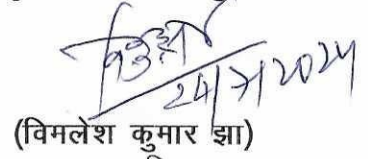 24/7/2024
(विमलेश कुमार झा)